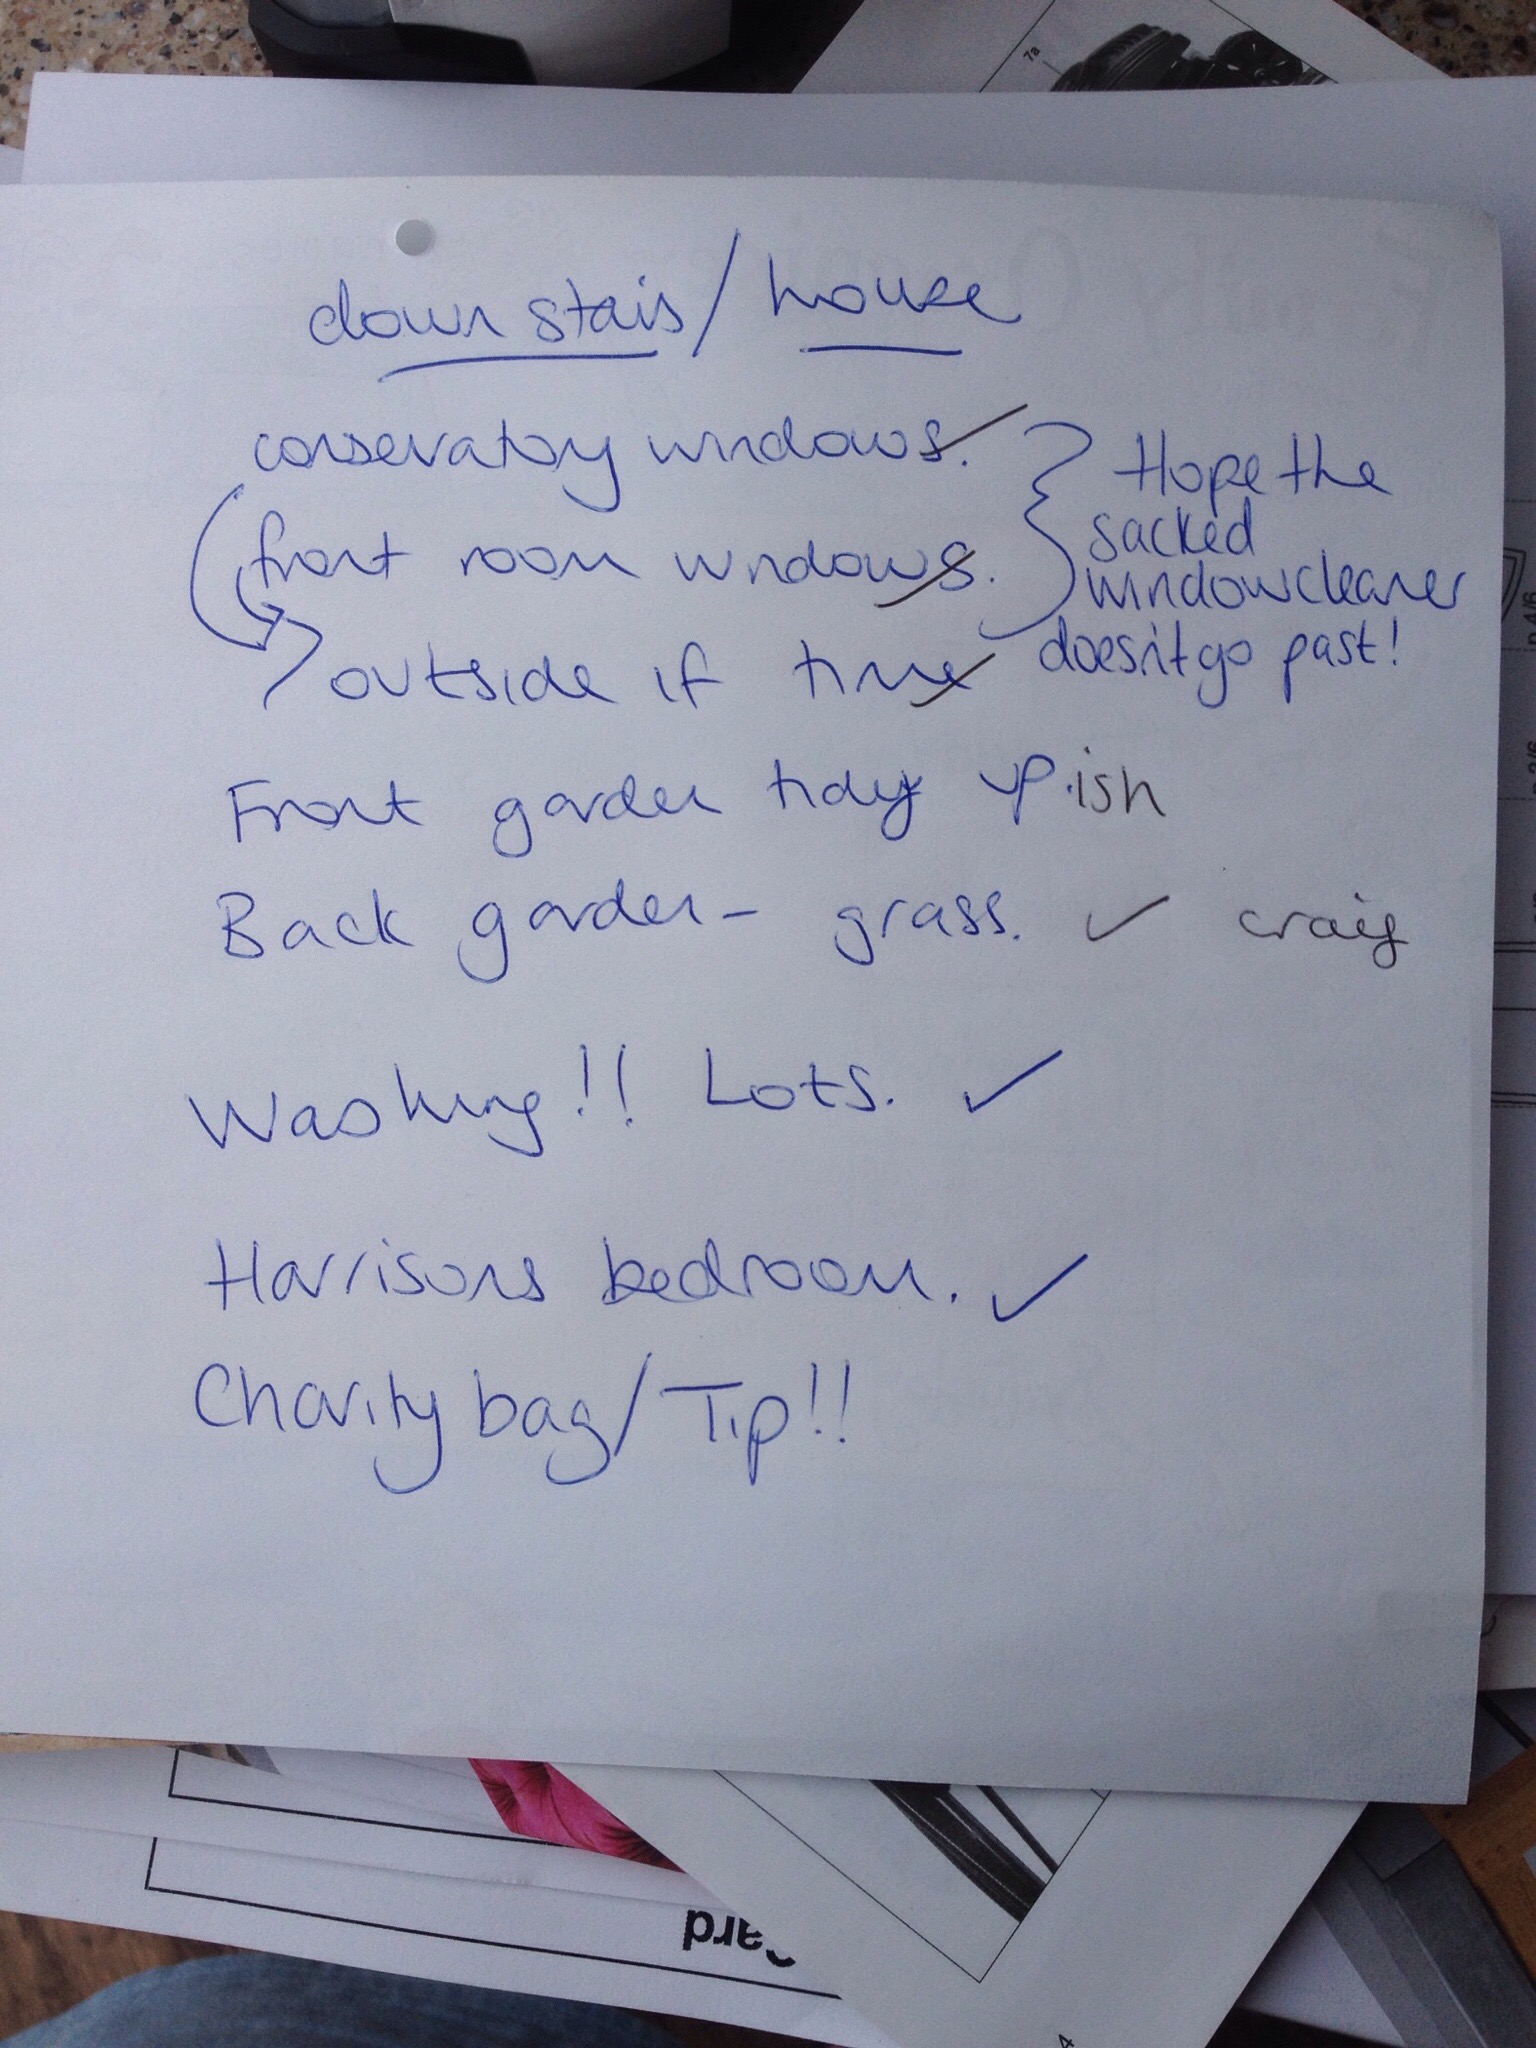 7a
down stais / house
conservatory windows. ✓
front room windows. ✓
outside if time ✓
Hope the
sacked
window cleaner
doesn't go past!
Front garden tidy up.ish
Back garden - grass. ✓ craig
Washing!! Lots. ✓
Harrisons bedroom. ✓
Charity bag / Tip!!
4